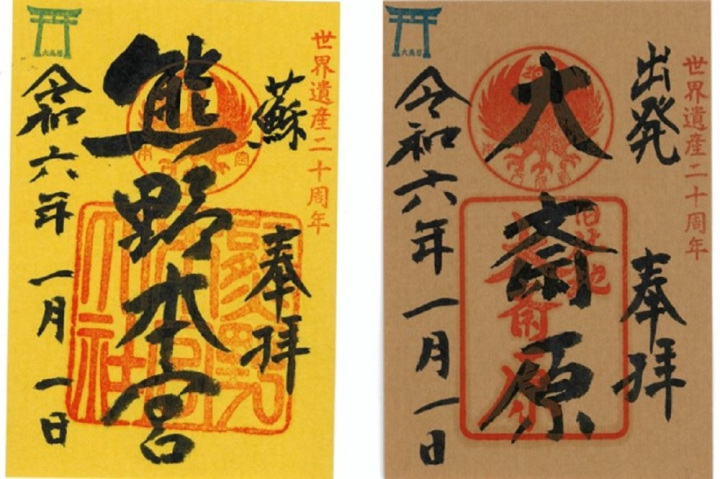 世界遺産二十周年
蘇
奉拝
熊野本宮
令和六年一月一日
世界遺産二十周年
出発
奉拝
大斎原
令和六年一月一日